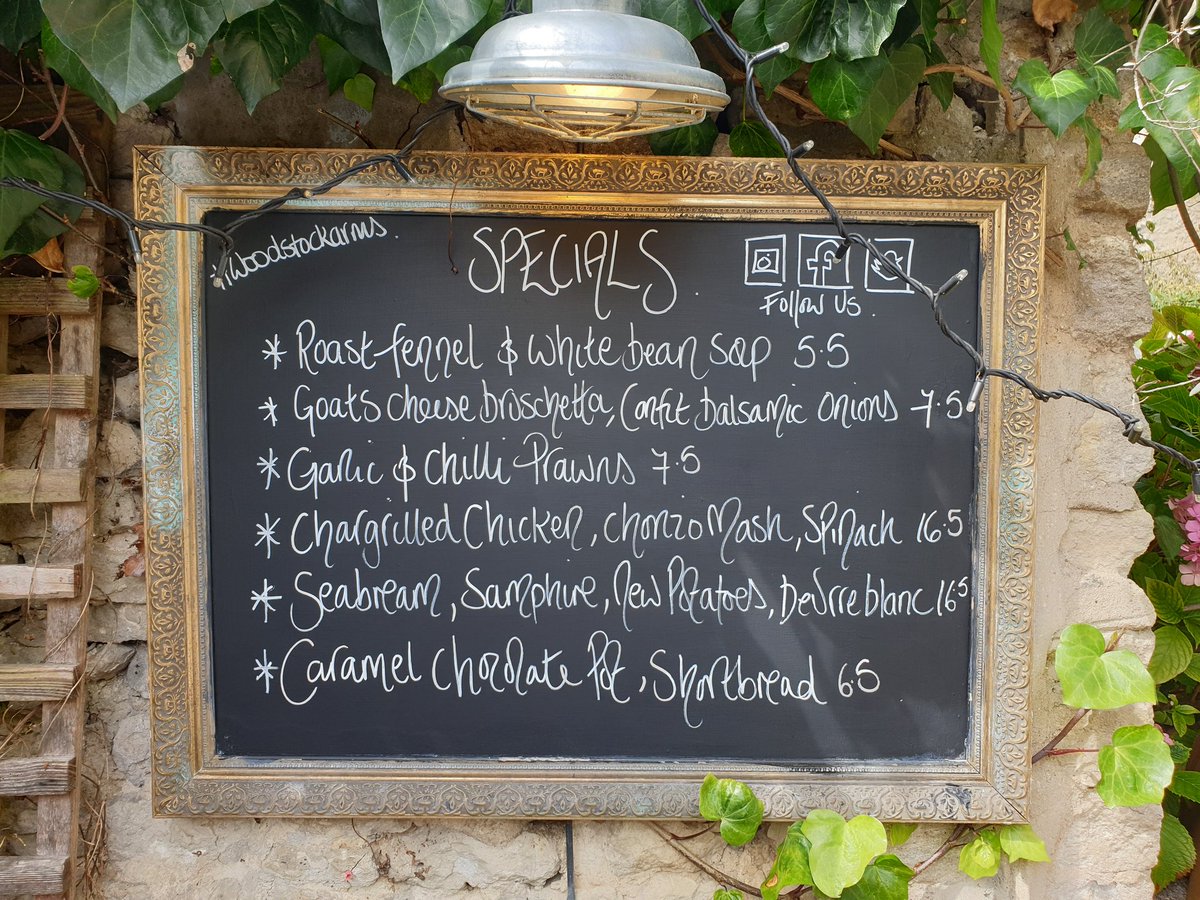 #woodstockarms.
SPECIALS.
Follow Us.
* Roast fennel & white bean soup 5.5
* Goats cheese bruschetta, Confit balsamic onions 7.5
* Garlic & Chilli Prawns 7.5
* Chargrilled Chicken, Chorizo Mash, Spinach 16.5
* Seabream, Samphire, New Potatoes, Beurre blanc 16.5
* Caramel Chocolate Pot, Shortbread 6.5